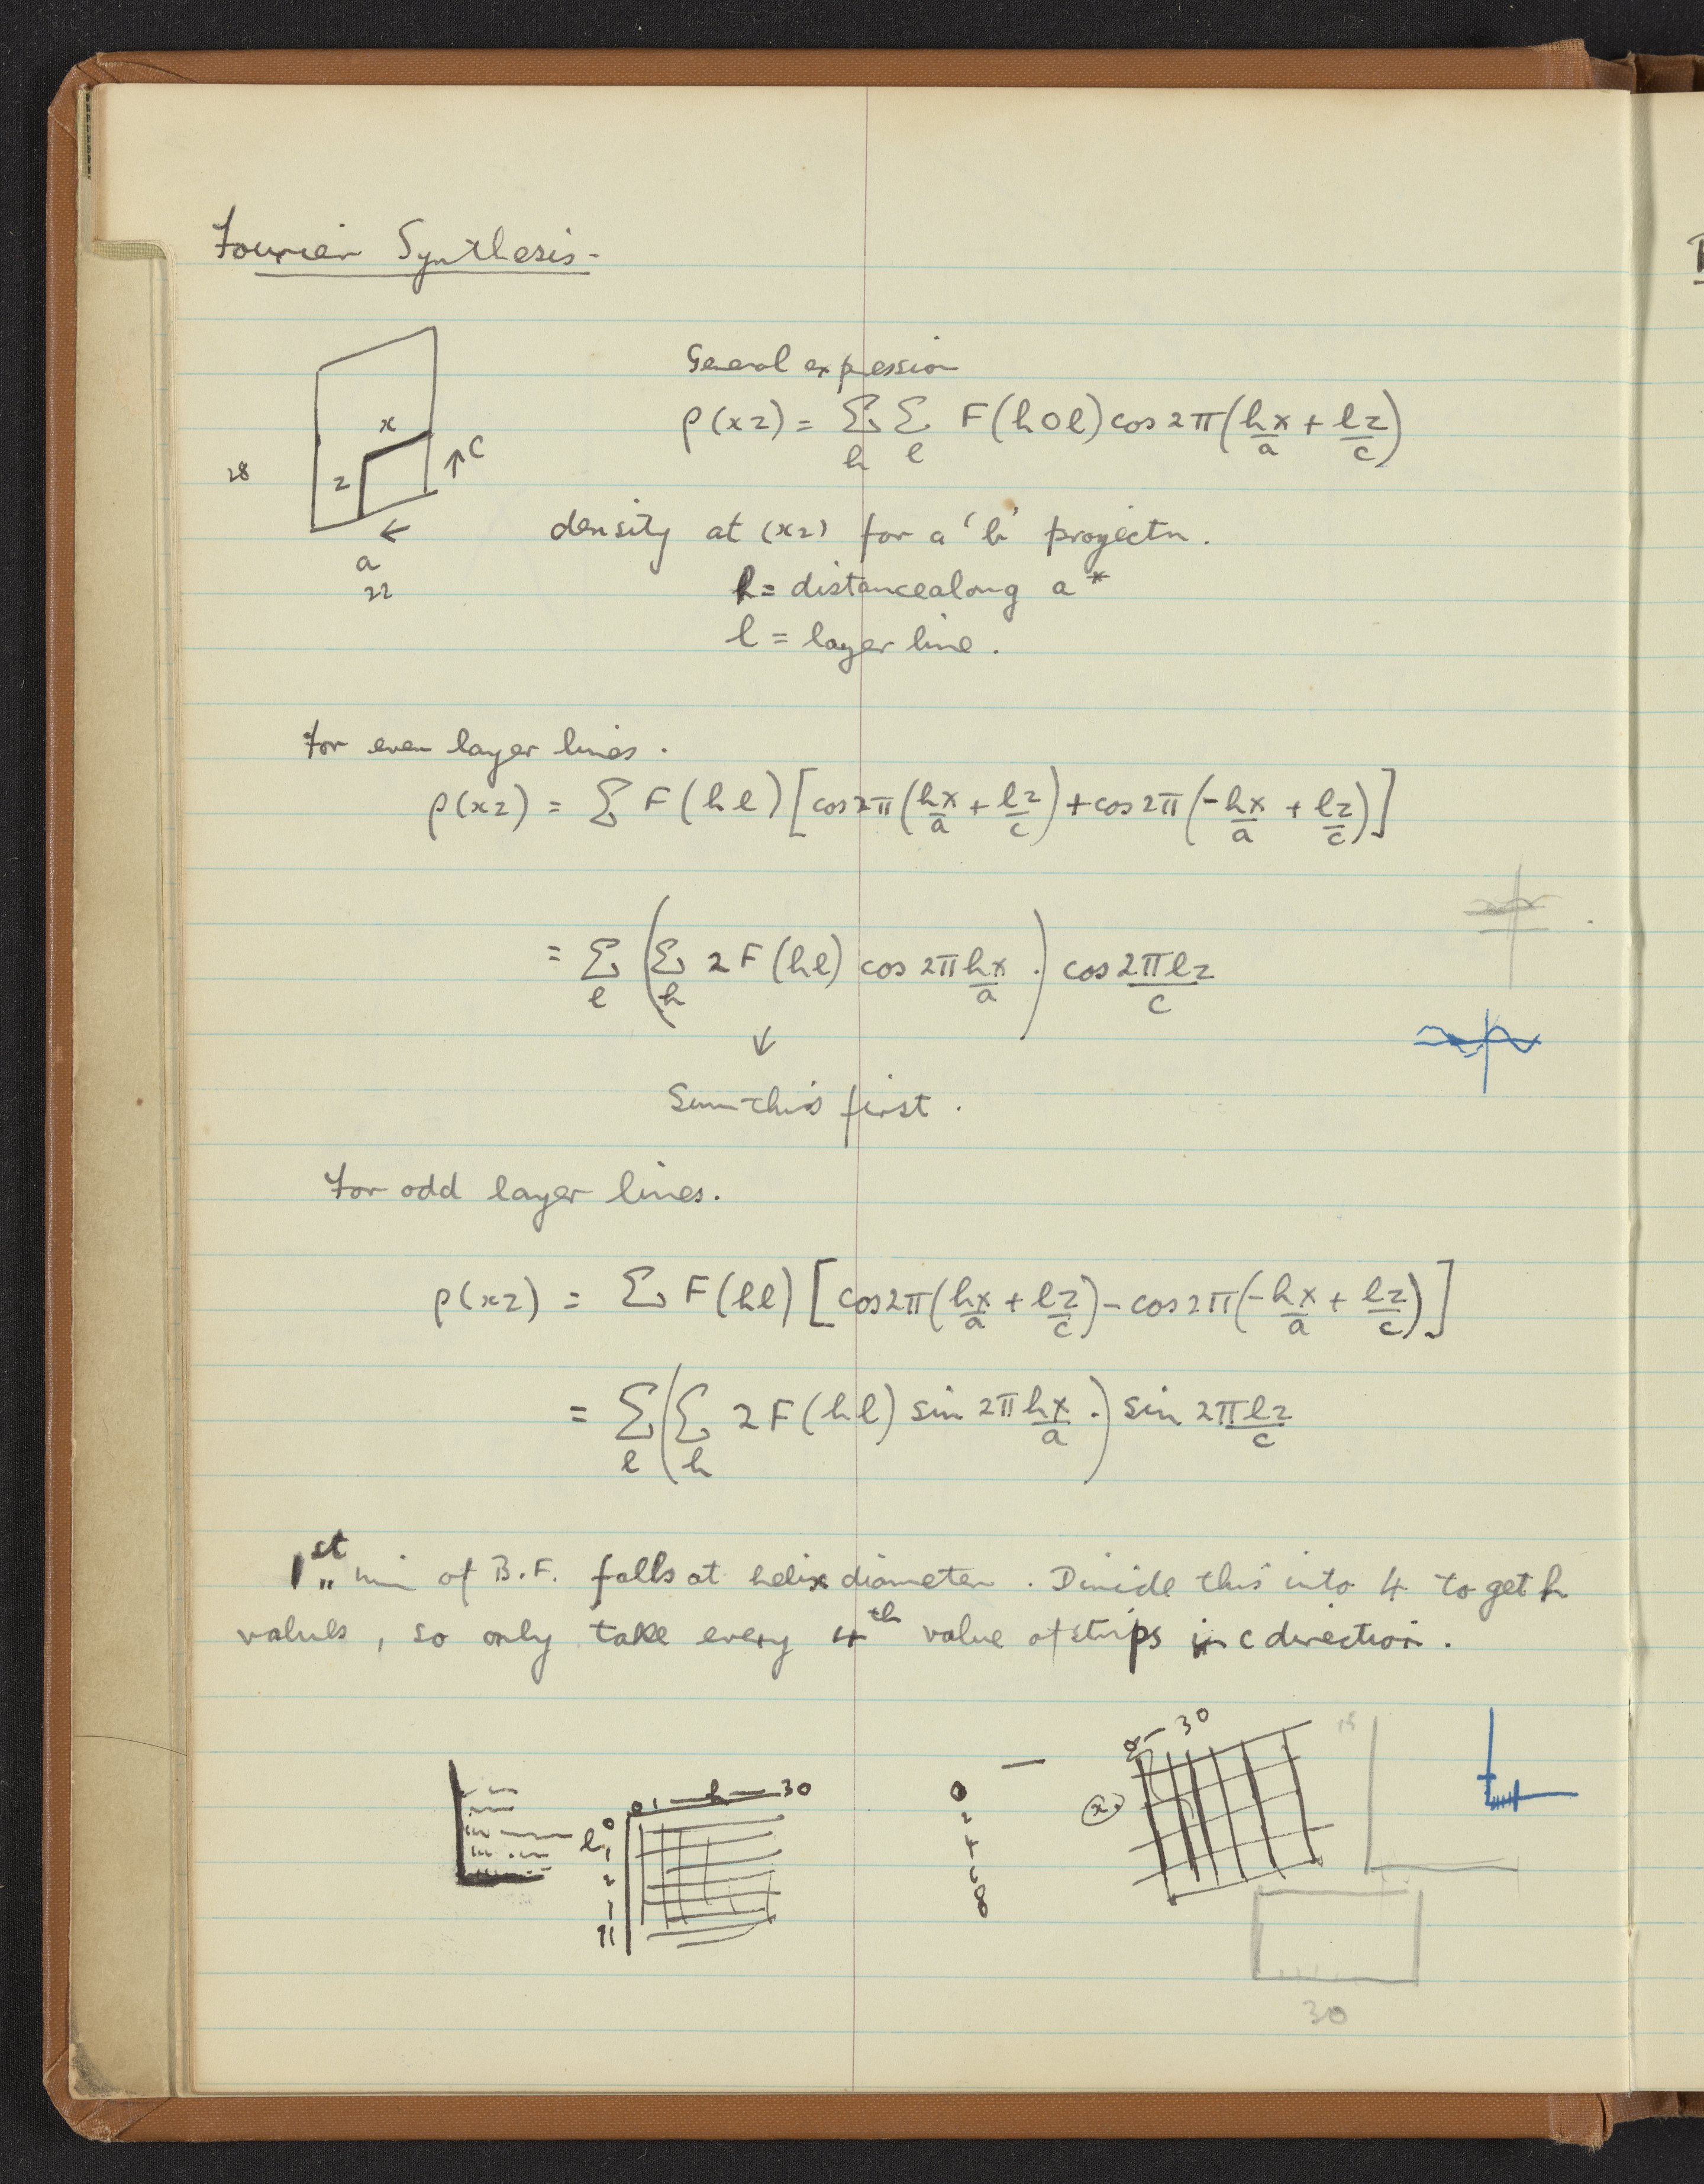 Fourier Synthesis-
x
z
↑ C
28
←
a
22
General expression
ρ(xz) = Σ_h Σ_l F(h0l) cos 2π(hx/a + lz/c)
density at (xz) for a 'b' projectn.
h = distance along a*
l = layer line.
For even layer lines.
ρ(xz) = Σ F(hl) [cos 2π(hx/a + lz/c) + cos 2π(-hx/a + lz/c)]
= Σ_l (Σ_h 2F(hl) cos 2π hx/a .) cos 2πlz/c
↓
Sum this first.
For odd layer lines.
ρ(xz) = Σ F(hl) [cos 2π(hx/a + lz/c) - cos 2π(-hx/a + lz/c)]
= Σ_l (Σ_h 2F(hl) sin 2π hx/a .) sin 2π lz/c
1st min of B.F. falls at helix diameter. Divide this into 4 to get h
values, so only take every 4th value of strips in c direction.
0 1 — h — 30
l
0
1
2
11
0
2
4
6
8
0 — 30
x
30